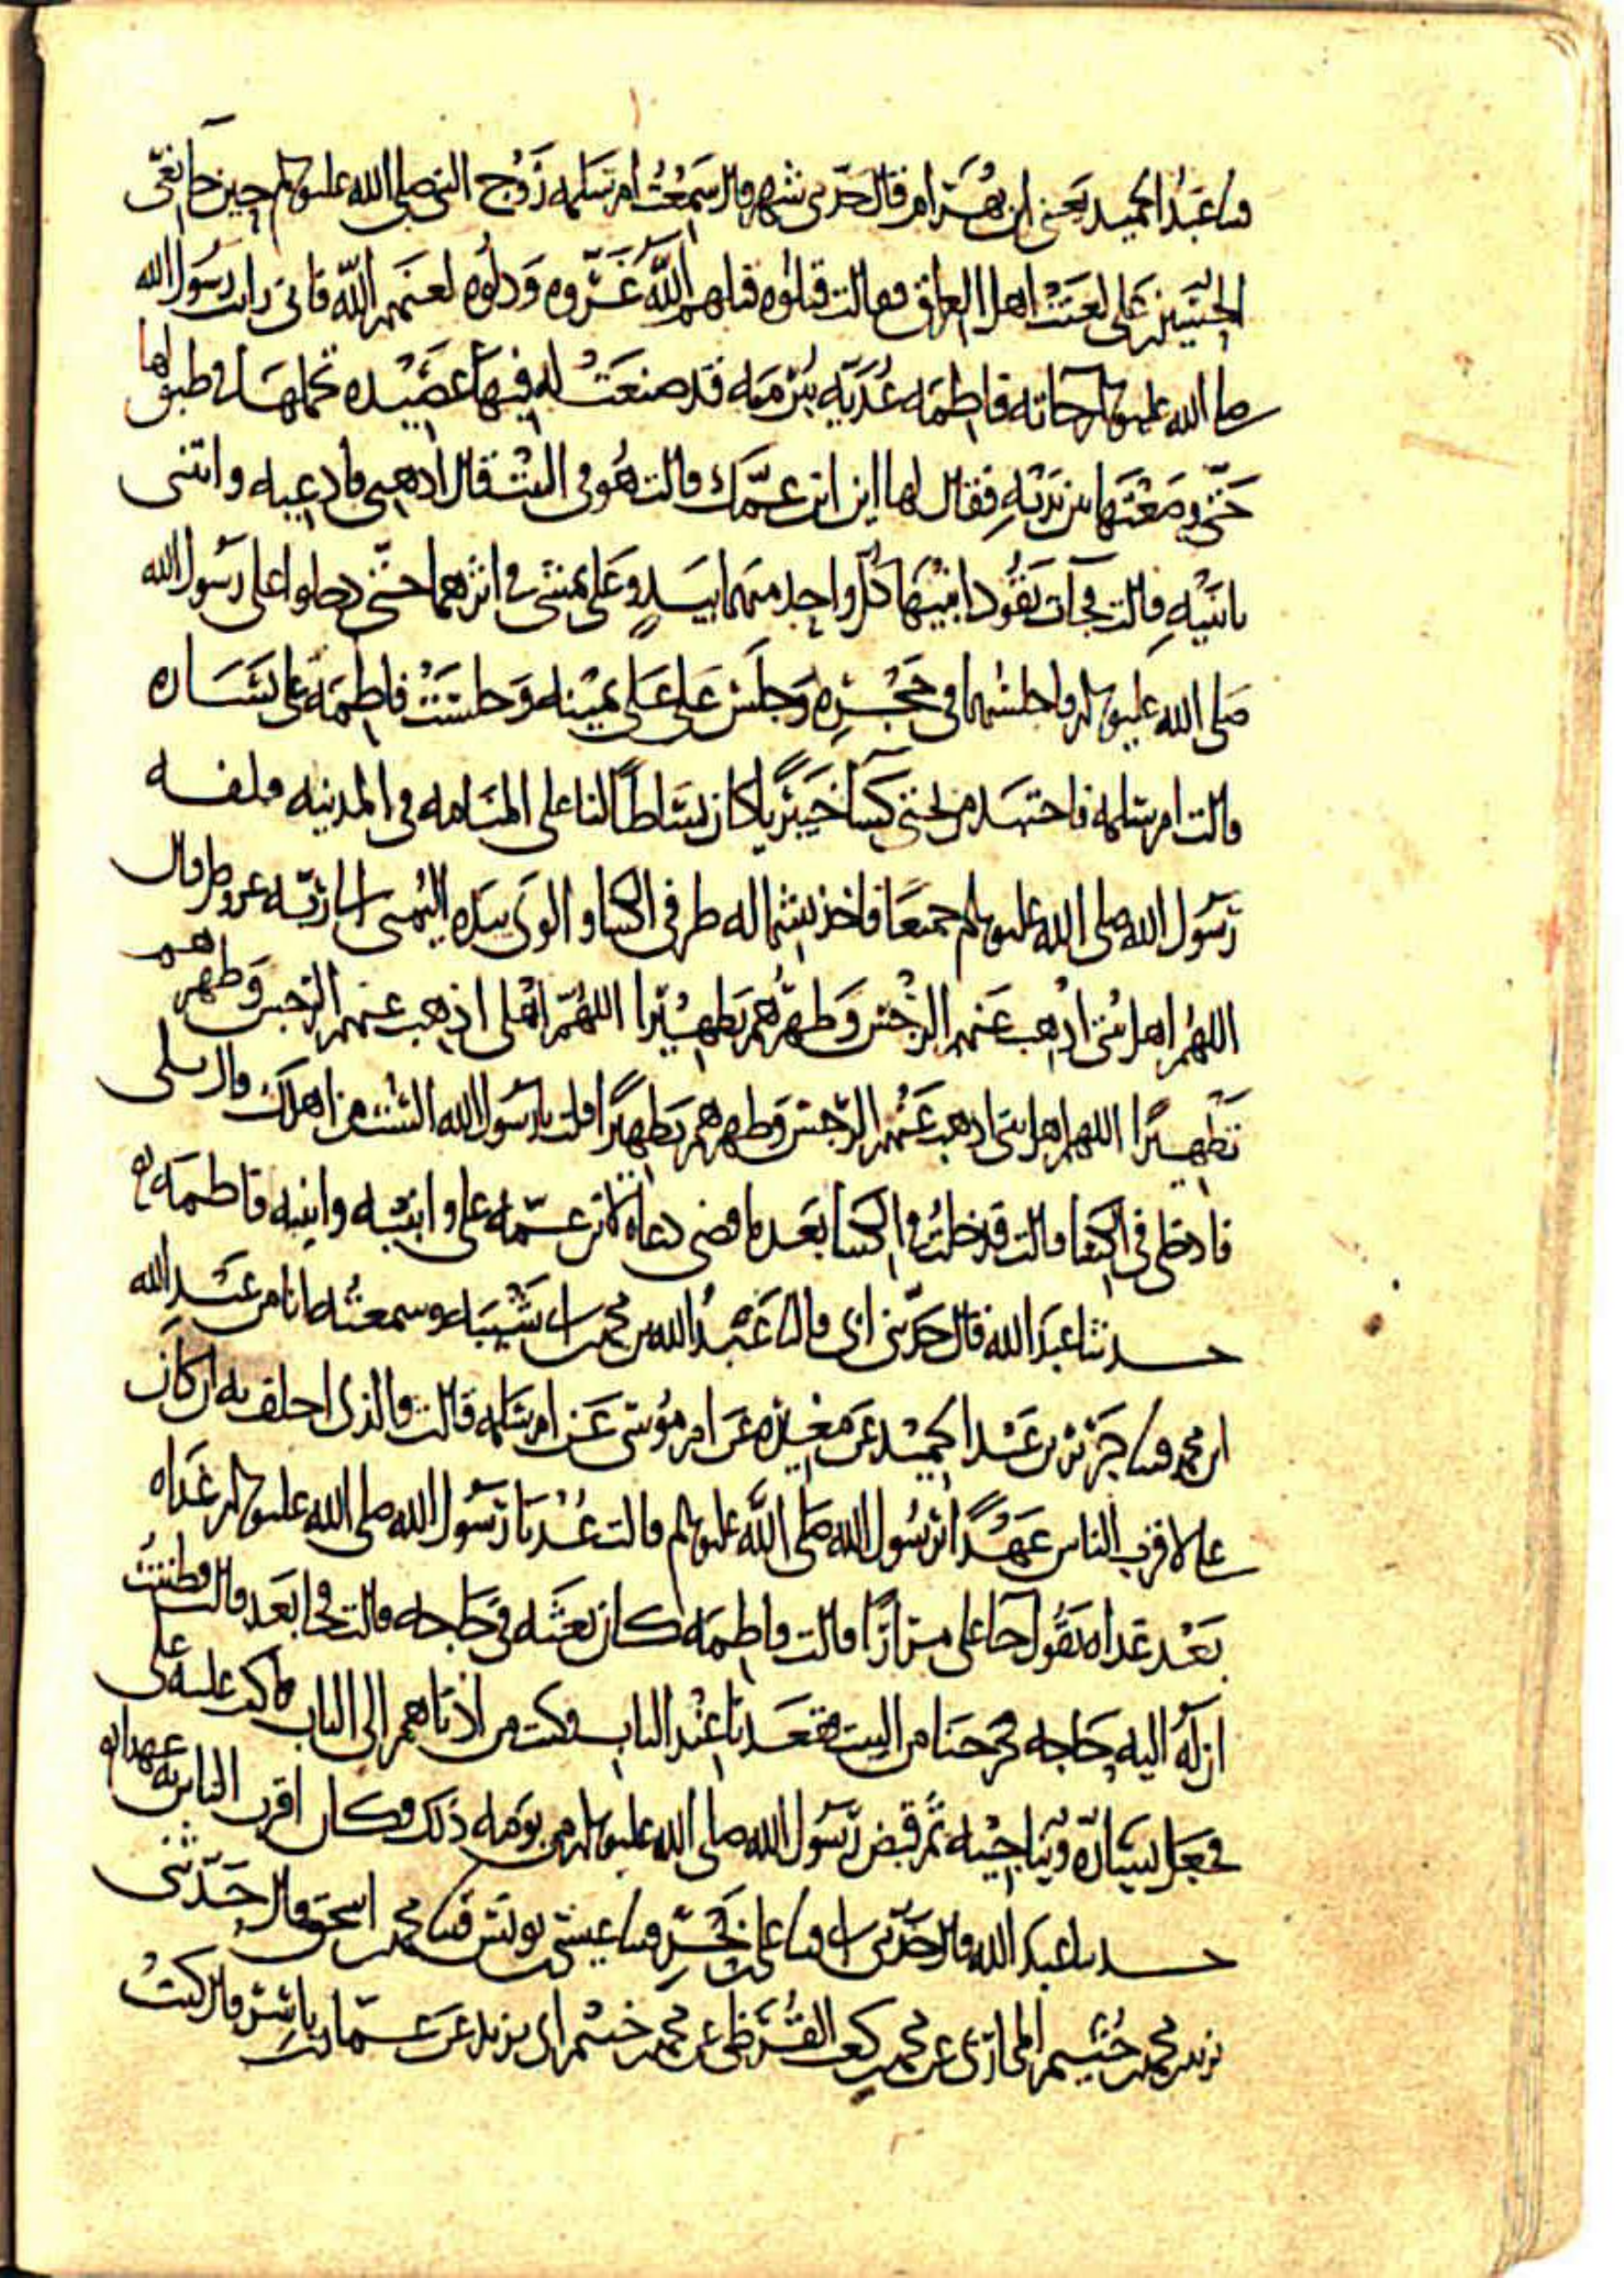 قثنا عبد الحميد يعني ابن بهرام قال حدثني شهر قال سمعت ام سلمه زوج النبي صلى الله عليه وسلم حين جا نعي
الحسين بن علي لعنت اهل العراق فقالت قتلوه قتلهم الله غروه وذلوه لعنهم الله فاني رايت رسول الله
صلى الله عليه وسلم جاته فاطمه غديه ببرمه قد صنعت له فيها عصيده تحملها في طبق لها
حتى وضعتها بين يديه فقال لها اين ابن عمك قالت هو في البيت قال اذهبي فادعيه وايتني
بابنيه قالت فجات تقود ابنيها كل واحد منهما بيد وعلي يمشي في اثرهما حتى دخلوا على رسول الله
صلى الله عليه وسلم فاجلسهما في حجره وجلس علي على يمينه وجلست فاطمه على يساره
قالت ام سلمه فاجتبذ من تحتي كسا خيبريا كان بساطا لنا على المنامه في المدينه فلفه
رسول الله صلى الله عليه وسلم جميعا فاخذ بشماله طرفي الكسا والوى بيده اليمنى الى ربه عز وجل قال
اللهم اهل بيتي اذهب عنهم الرجس وطهرهم تطهيرا اللهم اهلي اذهب عنهم الرجس وطهرهم
تطهيرا اللهم اهل بيتي اذهب عنهم الرجس وطهرهم تطهيرا قلت يا رسول الله الست من اهلك قال بلى
فادخلي في الكسا قالت فدخلت في الكسا بعد ما قضى دعاه لابن عمه علي وابنيه وابنته فاطمه
حدثنا عبد الله قال حدثني ابي قال ثنا عبد الله بن محمد بن ابي شيبه وسمعته انا من عبد الله
ابن محمد قثنا جرير بن عبد الحميد عن مغيره عن ام موسى عن ام سلمه قالت والذي احلف به ان كان
علي لاقرب الناس عهدا برسول الله صلى الله عليه وسلم قالت عدنا رسول الله صلى الله عليه وسلم غداه
بعد غداه يقول جا علي مرارا قالت فاطمه كان بعثه في حاجه قالت فجا بعد قالت فظننت
ان له اليه حاجه فخرجنا من البيت فقعدنا عند الباب فكنت من ادناهم الى الباب فاكب عليه علي
فجعل يساره ويناجيه ثم قبض رسول الله صلى الله عليه وسلم من يومه ذلك فكان اقرب الناس به عهدا
حدثنا عبد الله قال حدثني ابي قثنا علي بن بحر قثنا عيسى بن يونس قثنا محمد بن اسحق قال حدثني
يزيد بن محمد بن خثيم المحاربي عن محمد بن كعب القرظي عن محمد بن خثيم ابي يزيد عن عمار بن ياسر قال كنت